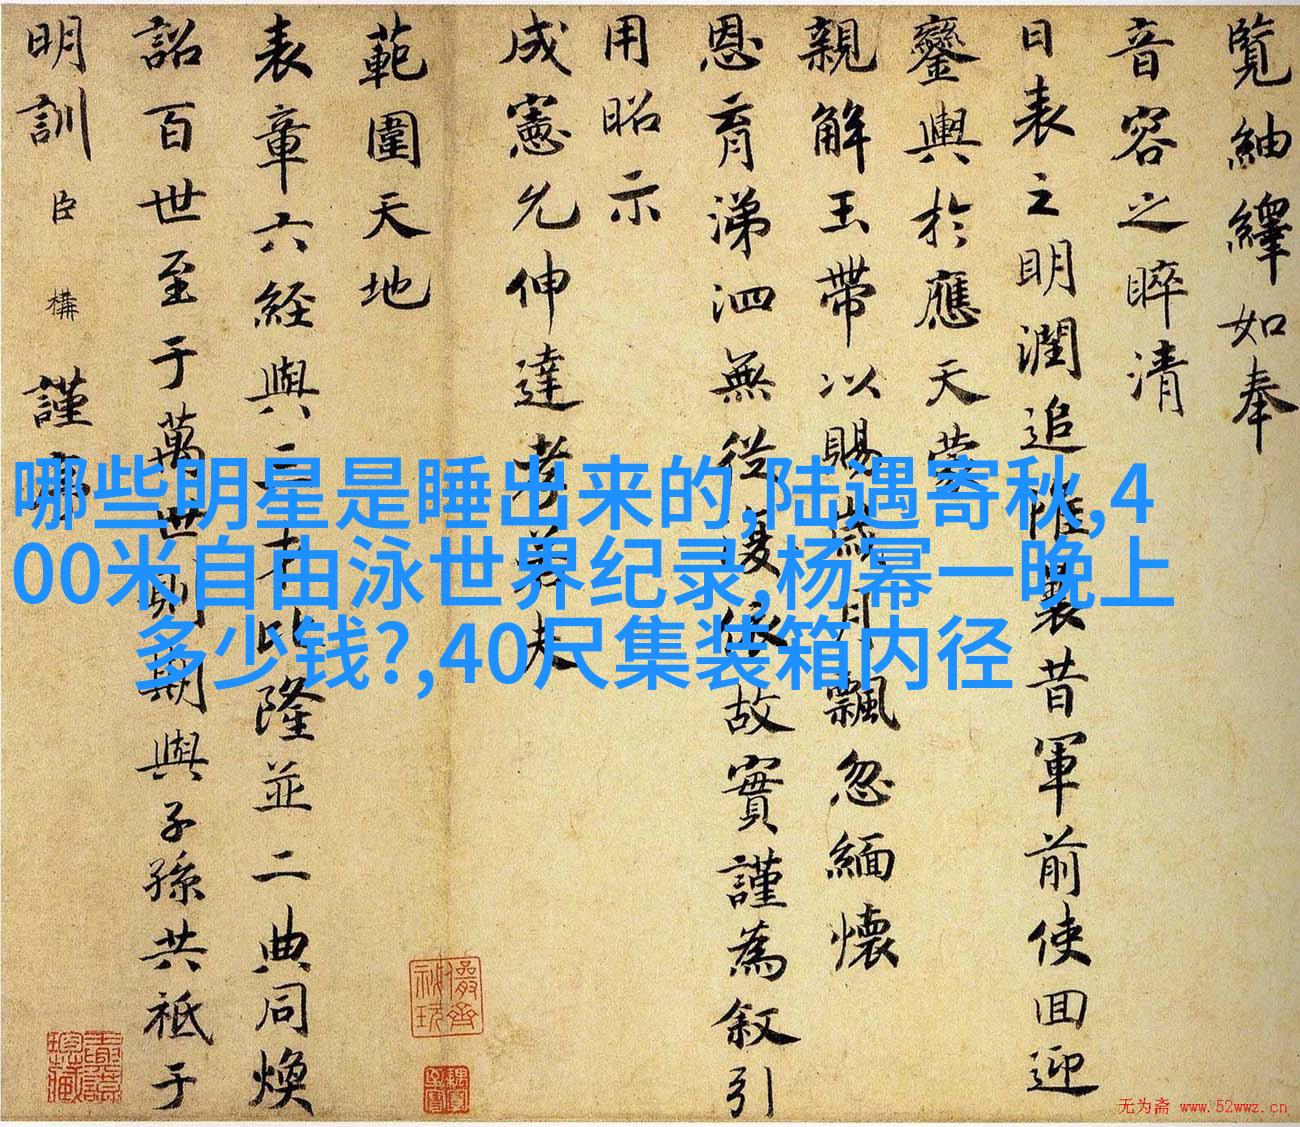 覽紬繹如奉
音容之睟清
日表之明潤追惟曩昔軍前使回迎
鑾輿於應天蒙
親解玉帶以賜歲月飄忽緬懷
恩育涕泗無從爰依故實謹為叙引
用昭示
成憲允伸達孝若夫
範圍天地
表章六經與三才比隆並二典同煥
詔百世至于萬世則期與子孫共祗于
明訓臣構謹序
哪些明星是睡出来的,陆遇寄秋,4
00米自由泳世界纪录,杨幂一晚上
多少钱?,40尺集装箱内径
无为斋 www.52wwz.cn